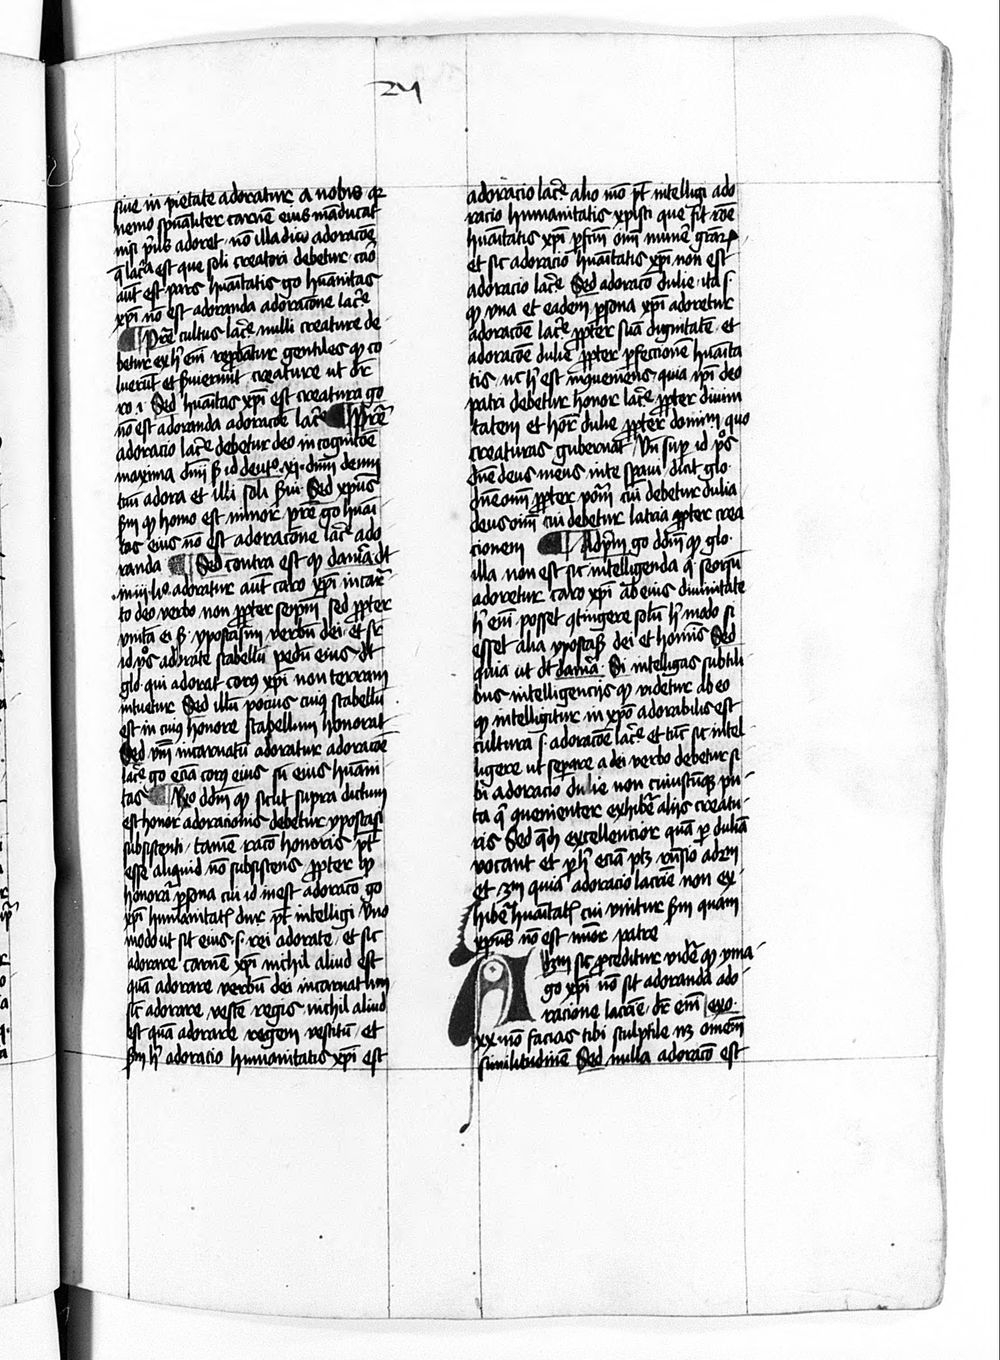 24
siue in pietate adoratur a nobis qr
nemo spualiter carnē eius māducat
nisi prius adoret nō illa dico adoracōe
q̄ lat'a est que soli creatori debetur caro
aut est pars huāitatis go huāitas
xpi nō est adoranda adoracione lat'e
Pret'e cultus lat'e nulli creature de
betur ex h' em̄ reprobātur gentiles qp co
luerūt et suierunt creature ut dr̄
ro i Sed huāitas xpi est creatura go
nō est adoranda adoracōe lat'e Pret'e
adoracio lat'e debetur deo in cognicōe
maxima dnī s id deut'o xi dnm deum
tuū adora et illi soli sui Sed xpus
sm qp homo est minor pre go huāi
tas eius nō est adoracione lat'e ado
randa Sed contra est qp damas dt
iiii li adoratur aut caro xpi incar
to deo verbo non ppter seipm sed ppter
vnitā ei s ypostasim verbū dei et sic
id ps adorate scabellū pedū eius dt
glo qui adorat corp xpi non terram
intuetur Sed illū pocius cui scabellū
est in cui honore scabellum honorat
Sed vm incarnatū adoratur adoracōe
lat'e go eciā corp eius siue eius huāni
tas Rno dom qp sicut supra dictum
est honor adoracionis debetur ypostasi
subsistenti tamē racō honoris pt
esse aliquid nō subsistens ppter qp
honorat psona cui id inest adoracō go
xpi humanitatis dur pt intelligi vno
modo ut sit eius s rei adorate et sic
adorare carnē xpi nichil aliud est
quā adorare verbū dei incarnatum
sic adorare vestē regis nichil aliud
est quā adorare regem vestitū et
sm h' adoracio humanitatis xpi est
adoracio lat'e alio mō pt intelligi ado
racio humanitatis xpisti que fit rōe
huāitatis xpi pfcm omi munere grarp
et sic adoracio huāitatis xpi non est
adoracio lat'e Sed adoracō dulie ita s
qp vna et eadem psona xpi adoretur
adoracōe lat'e ppter suā dignitatē et
adoracōe dulie ppter pfeccionē huāita
tis nc h' est inqueniens quia ipi deo
patri debetur honor lat'e ppter diuini
tatem et honor dulie ppter dominiū quo
creaturas gubernat Vn sup id ps
dne deus meus in te speraui dicit glo
dne omi ppter potēm cui debetur dulia
deus omi cui debetur latria ppter crea
cionem Ad pm go dom qp glo
illa non est sic intelligenda q seorsū
adoretur caro xpi ab eius diuinitate
h' em̄ posset qtingere solū h' modo si
esset alia ypostas dei et hominis Sed
quia ut dt damas Si intelligas subtili
bus intelligencijs qp videtur ab eo
qp intelligitur in xpo adorabilis est
cultura s adoracōe lat'e et tūc sic intel
ligere ut separe a dei verbo debetur si
bi adoracio dulie non cuiuscūqz pu
ta q quenienter exhibet alijs creatu
ris Sed qdā excellencior quā p duliā
vocant et p h' eciā ptz rnsio ad 2m
et 3m quia adoracio latrie non ex
hibet huāitatis cui vnitur sm quam
xpus nō est minor patre
Ad 3m sic proceditur videt qp yma
go xpi nō sit adoranda ado
racione latrie dr em̄ exo
xx nō facias tibi sculptile nz omem
similitudinē Sed nulla adoracō est